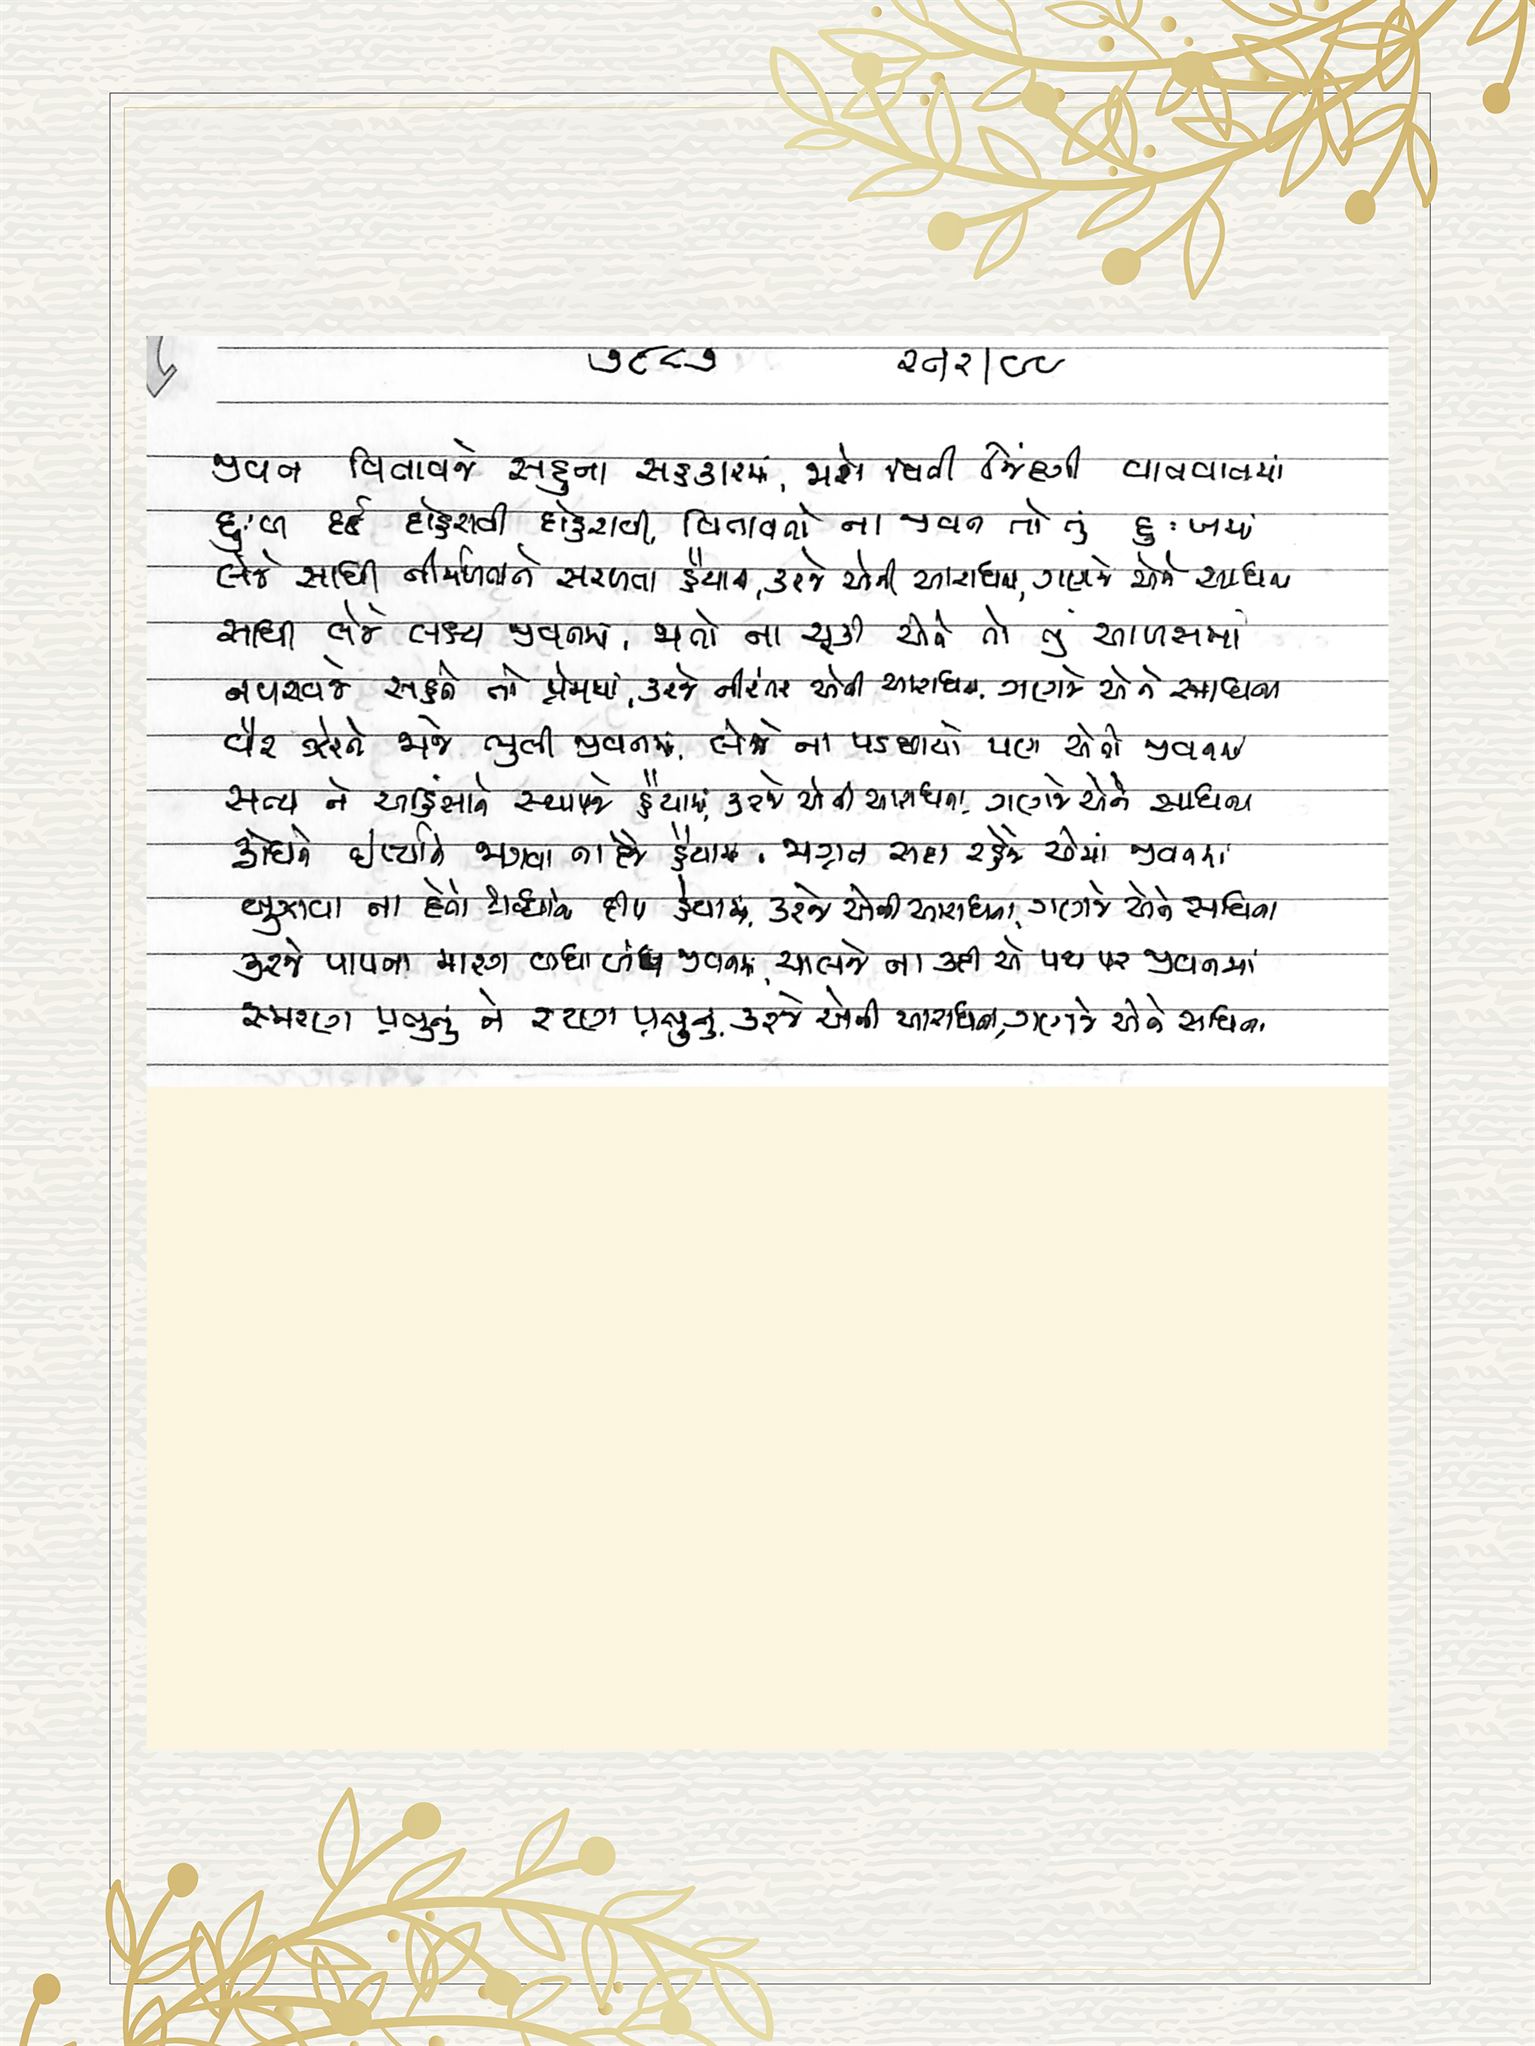 ૭૯૮૭ ૨૫/૨/૯૯
જીવન વિતાવજે સહુના સહકારમાં, જાશે વીતી જિંદગી વાતવાતમાં
દુઃખ દર્દ દોહરાવી દોહરાવી, વિતાવતો ના જીવન તો તું દુઃખમાં
લેજે સાધી નીર્મળતાને સરળતા હૈયામાં, કરજે એની આરાધના, ગણજે એને સાધના
સાધી લેજે લક્ષ્ય જીવનમાં, જાતો ના ચૂકી એને તો તું આળસમાં
નવરાવજે સહુને તો પ્રેમમાં, કરજે નીરંતર એની આરાધના, ગણજે એને સાધના
વૈર ઝેરને જાજે ભુલી જીવનમાં, લેજે ના પડછાયો પણ એનો જીવનમાં
સત્ય ને અહિંસાને સ્થાપજે હૈયામાં, કરજે એની આરાધના, ગણજે એને સાધના
ક્રોધને ઇર્ષ્યાને જાગવા ના દેજે હૈયામાં, જાગૃત સદા રહેજે એમાં જીવનમાં
બુઝાવા ના દેતો દીપ હૈયામાં, કરજે એની આરાધના, ગણજે એને સાધના
કરજે પાપના મારગ બધા બંધ જીવનમાં, ચાલજે ના કદી એ પથ પર જીવનમાં
સ્મરણ પ્રભુનું ને રટણ પ્રભુનું, કરજે એની આરાધના, ગણજે એને સાધના